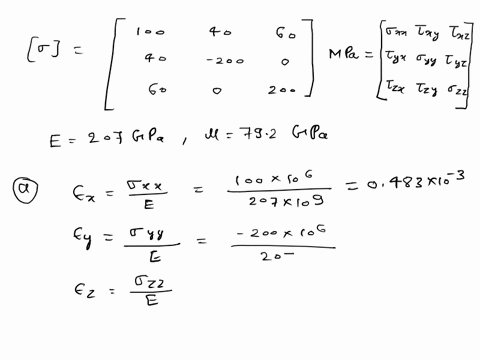 [σ] = [ 100 40 60 ; 40 -200 0 ; 60 0 200 ] MPa = [ σxx τxy τxz ; τyx σyy τyz ; τzx τzy σzz ]
E = 207 GPa , M = 79.2 GPa
(a) ϵx = σxx / E = 100 × 10^6 / 207 × 10^9 = 0.483 × 10^-3
ϵy = σyy / E = -200 × 10^6 / 20-
ϵz = σzz / E